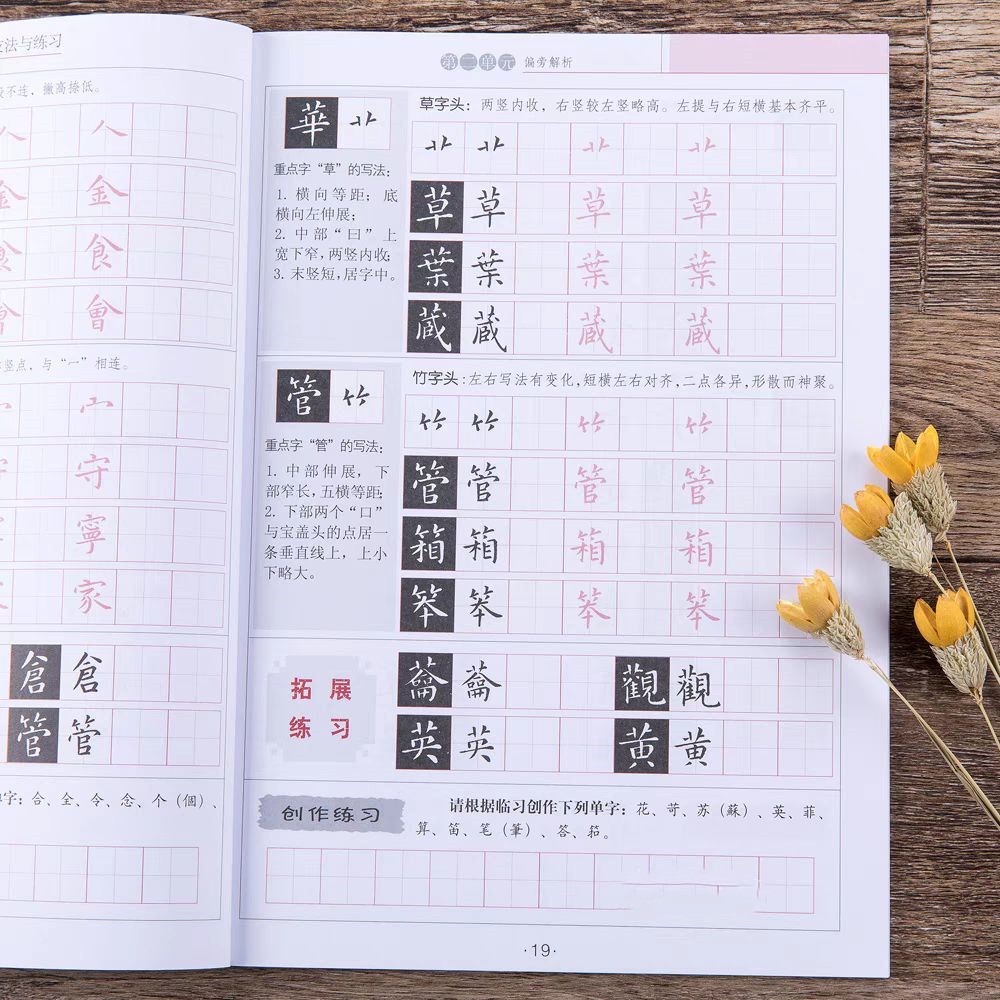 法与练习
不连，撇高捺低。
人 人
金 金
食 食
會 會
竖点，与“一”相连。
宀
守
寧
家
倉 倉
管 管
字：合、全、令、念、个（個）、
第二单元 偏旁解析
華 艹
重点字“草”的写法：
1. 横向等距；底
横向左伸展；
2. 中部“曰”上
宽下窄，两竖内收；
3. 末竖短，居字中。
草字头：两竖内收，右竖较左竖略高。左提与右短横基本齐平。
艹 艹 艹 艹
草 草 草 草
葉 葉 葉 葉
蔵 蔵 蔵 蔵
管 竹
重点字“管”的写法：
1. 中部伸展，下
部窄长，五横等距；
2. 下部两个“口”
与宝盖头的点居一
条垂直线上，上小
下略大。
竹字头：左右写法有变化，短横左右对齐，二点各异，形散而神聚。
竹 竹 竹 竹
管 管 管 管
箱 箱 箱 箱
笨 笨 笨 笨
拓展
练习
觀 觀
英 英 黄 黄
创作练习
请根据临习创作下列单字：花、苛、苏（蘇）、英、菲、
算、笛、笔（筆）、答、筘。
·19·